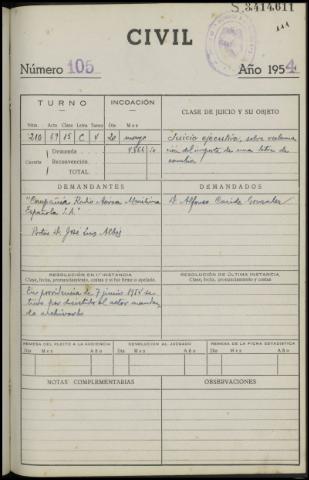 S.3.414.611
CIVIL
Número 105
Año 1954
TURNO
INCOACIÓN
CLASE DE JUICIO Y SU OBJETO
Núm. Acto Clase Letra Turno
Día Mes
210 69 15 C 4 20 mayo
Juicio ejecutivo, sobre reclama-
ción del importe de una letra de
cambio
Demanda
Cuantía Reconvención
1 TOTAL
DEMANDANTES
DEMANDADOS
"Compañía Radio Aerea Maritima
Española S.A."
D. Alfonso González
D. José Luis
RESOLUCIÓN EN 1ª INSTANCIA
Clase, fecha, pronunciamiento, costas y si fué firme o apelado.
RESOLUCIÓN DE ÚLTIMA INSTANCIA
Clase, fecha, pronunciamiento y costas
En providencia de 7 junio 1954 se
tuvo por desistido al actor mandan-
do archivarlo
REMESA DEL PLEITO A LA AUDIENCIA
DEVOLUCIÓN AL JUZGADO
REMESA DE LA FICHA ESTADÍSTICA
Día Mes Año
Día Mes Año
Día Mes Año
NOTAS COMPLEMENTARIAS
OBSERVACIONES